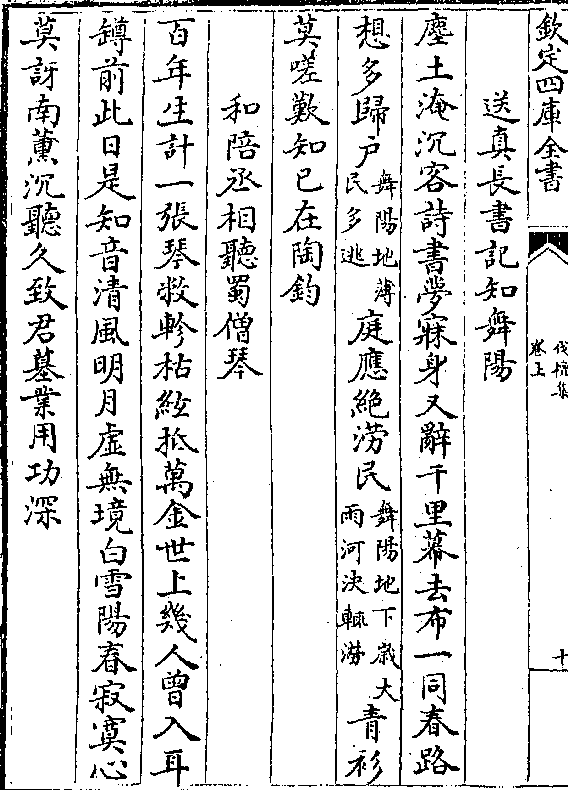 欽定四庫全書
伐檀集
卷上
十
送真長書記知舞陽
塵土淹沉客詩書夢寐身又辭千里幕去布一同春路
想多歸户舞陽地薄民多逃庭應絶澇民舞陽地下歲大雨河決輒澇青衫
莫嗟歎知已在陶鈞
和陪丞相聽蜀僧琴
百年生計一張琴救軫枯絃抵萬金世上幾人曾入耳
罇前此日是知音清風明月虚無境白雪陽春寂寞心
莫訝南薫沉聽久致君基業用功深